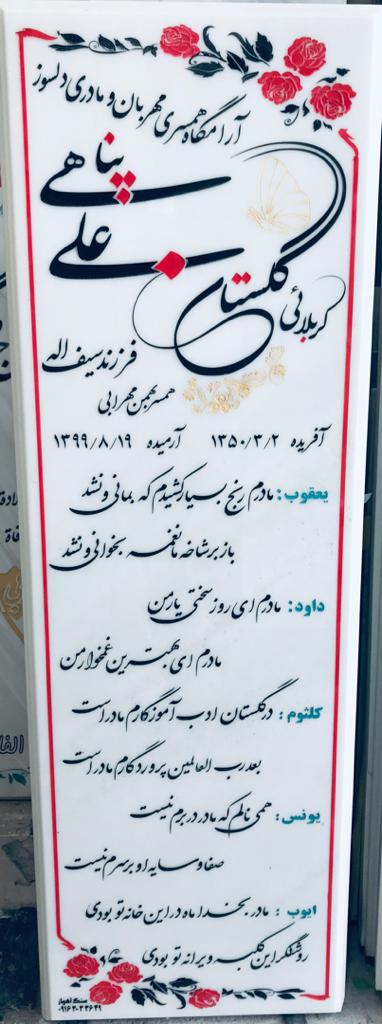 آرامگاه همسری مهربان و مادری دلسوز
کربلائی گلستان علی پناهی
فرزند سیف اله
همسر بهمن مهرابی
آفریده ۱۳۵۰/۳/۲ آرمیده ۱۳۹۹/۸/۱۹
یعقوب: مادرم رنج بسیار کشیدم که بمانی و نشد
باز بر شاخه ما نغمه بخوانی و نشد
داود: مادرم ای روز سختی یار من
مادرم ای بهترین غمخوار من
کلثوم: در گلستان ادب آموزگارم مادر است
بعد رب العالمین پروردگارم مادر است
یونس: همی نالم که مادر در برم نیست
صفا و سایه او بر سرم نیست
ایوب: مادر بخدا ماه در این خانه تو بودی
روشنگر این کلبه ویرانه تو بودی
سنگ اهواز